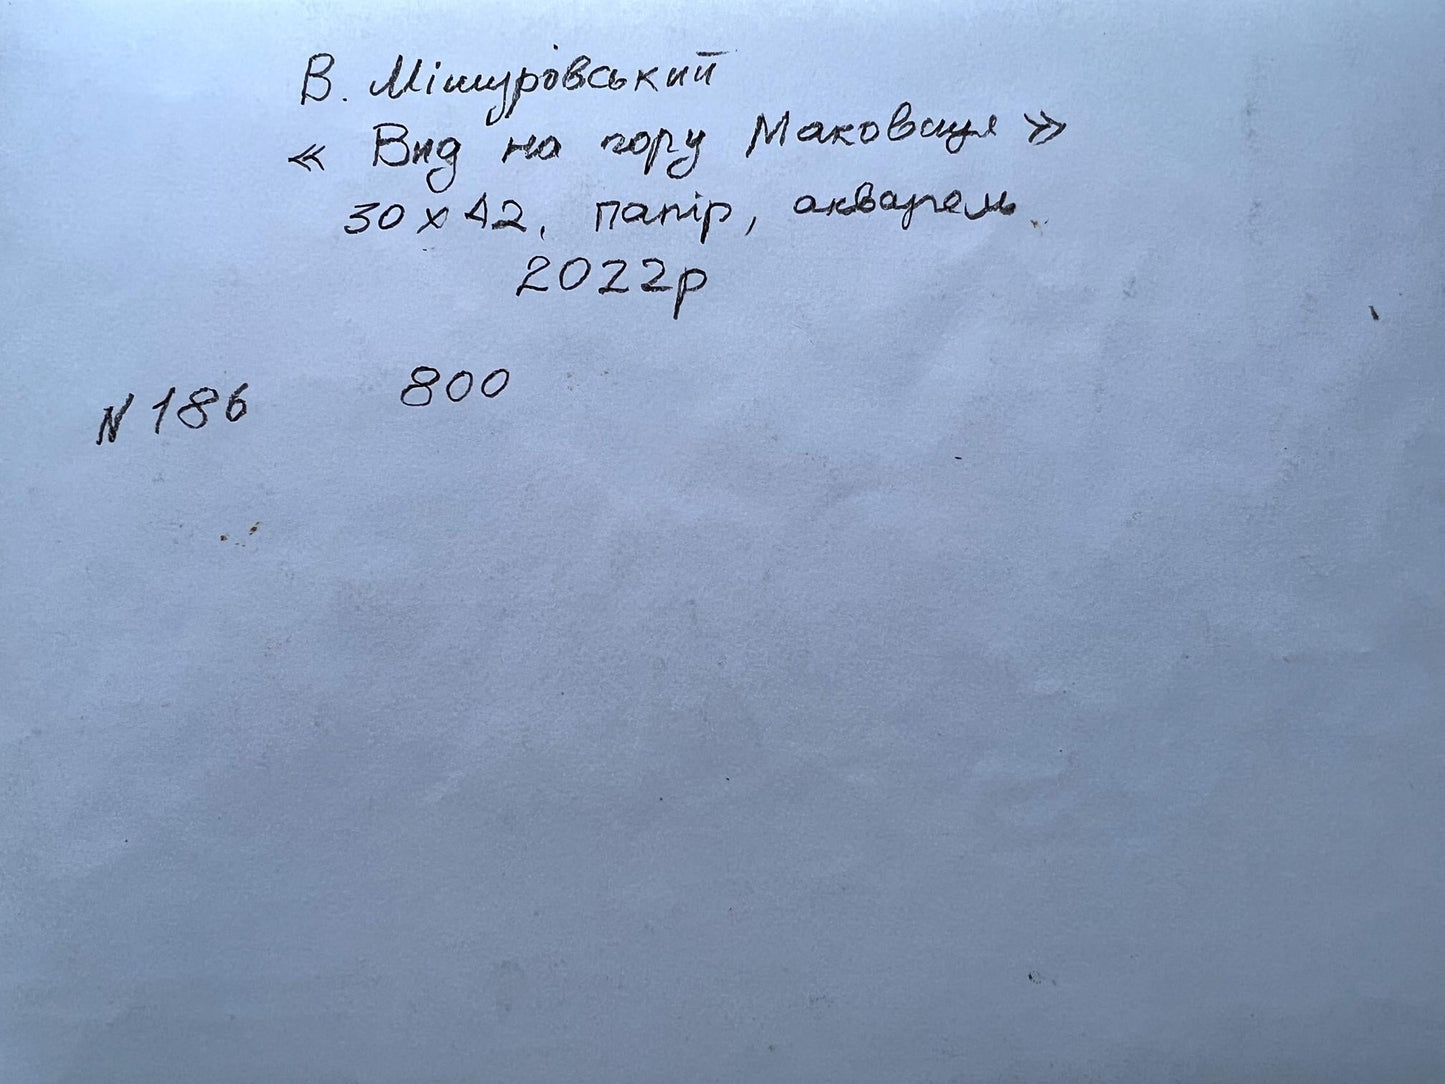 В. Мішуровський
« Вид на гору Маковиця »
30 х 42, папір, акварель
2022р
N 186 800